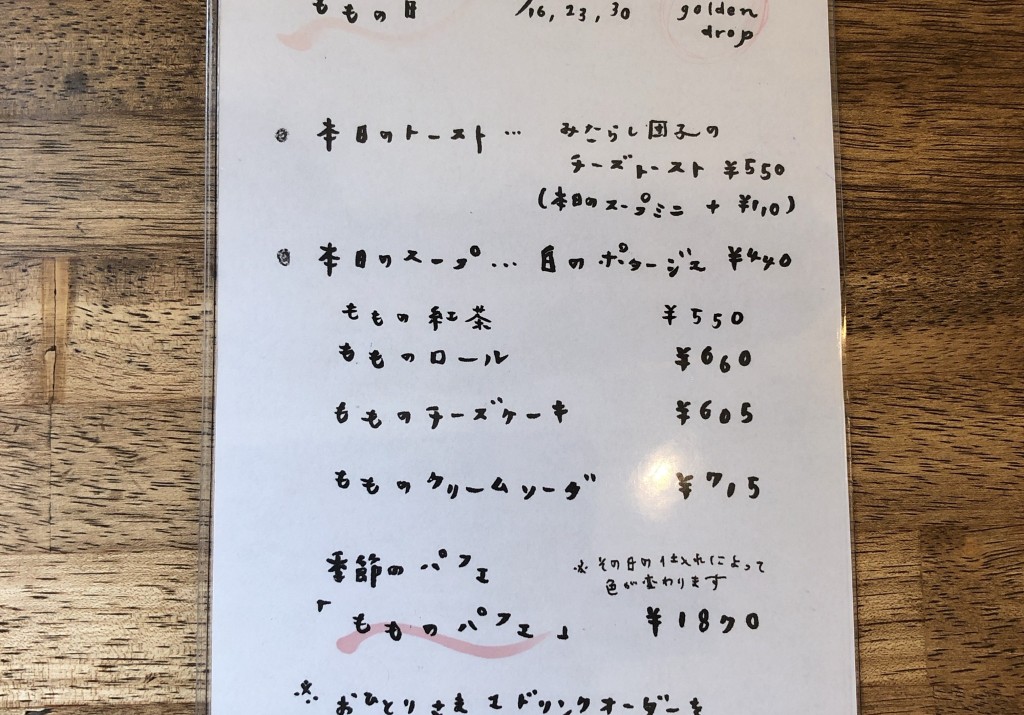 ももの日 /16, 23, 30 golden
drop
本日のトースト… みたらし団子の
チーズトースト ¥550
(本日のスープミニ + ¥110)
本日のスープ… 白のポタージュ ¥440
ももの紅茶 ¥550
ももの ロール ¥660
ももの チーズケーキ ¥605
ももの クリームソーダ ¥715
季節の パフェ ※その日の仕入れによって
色が変わります
「ももの パフェ」 ¥1870
※ おひとりさま エドリンクオーダーを